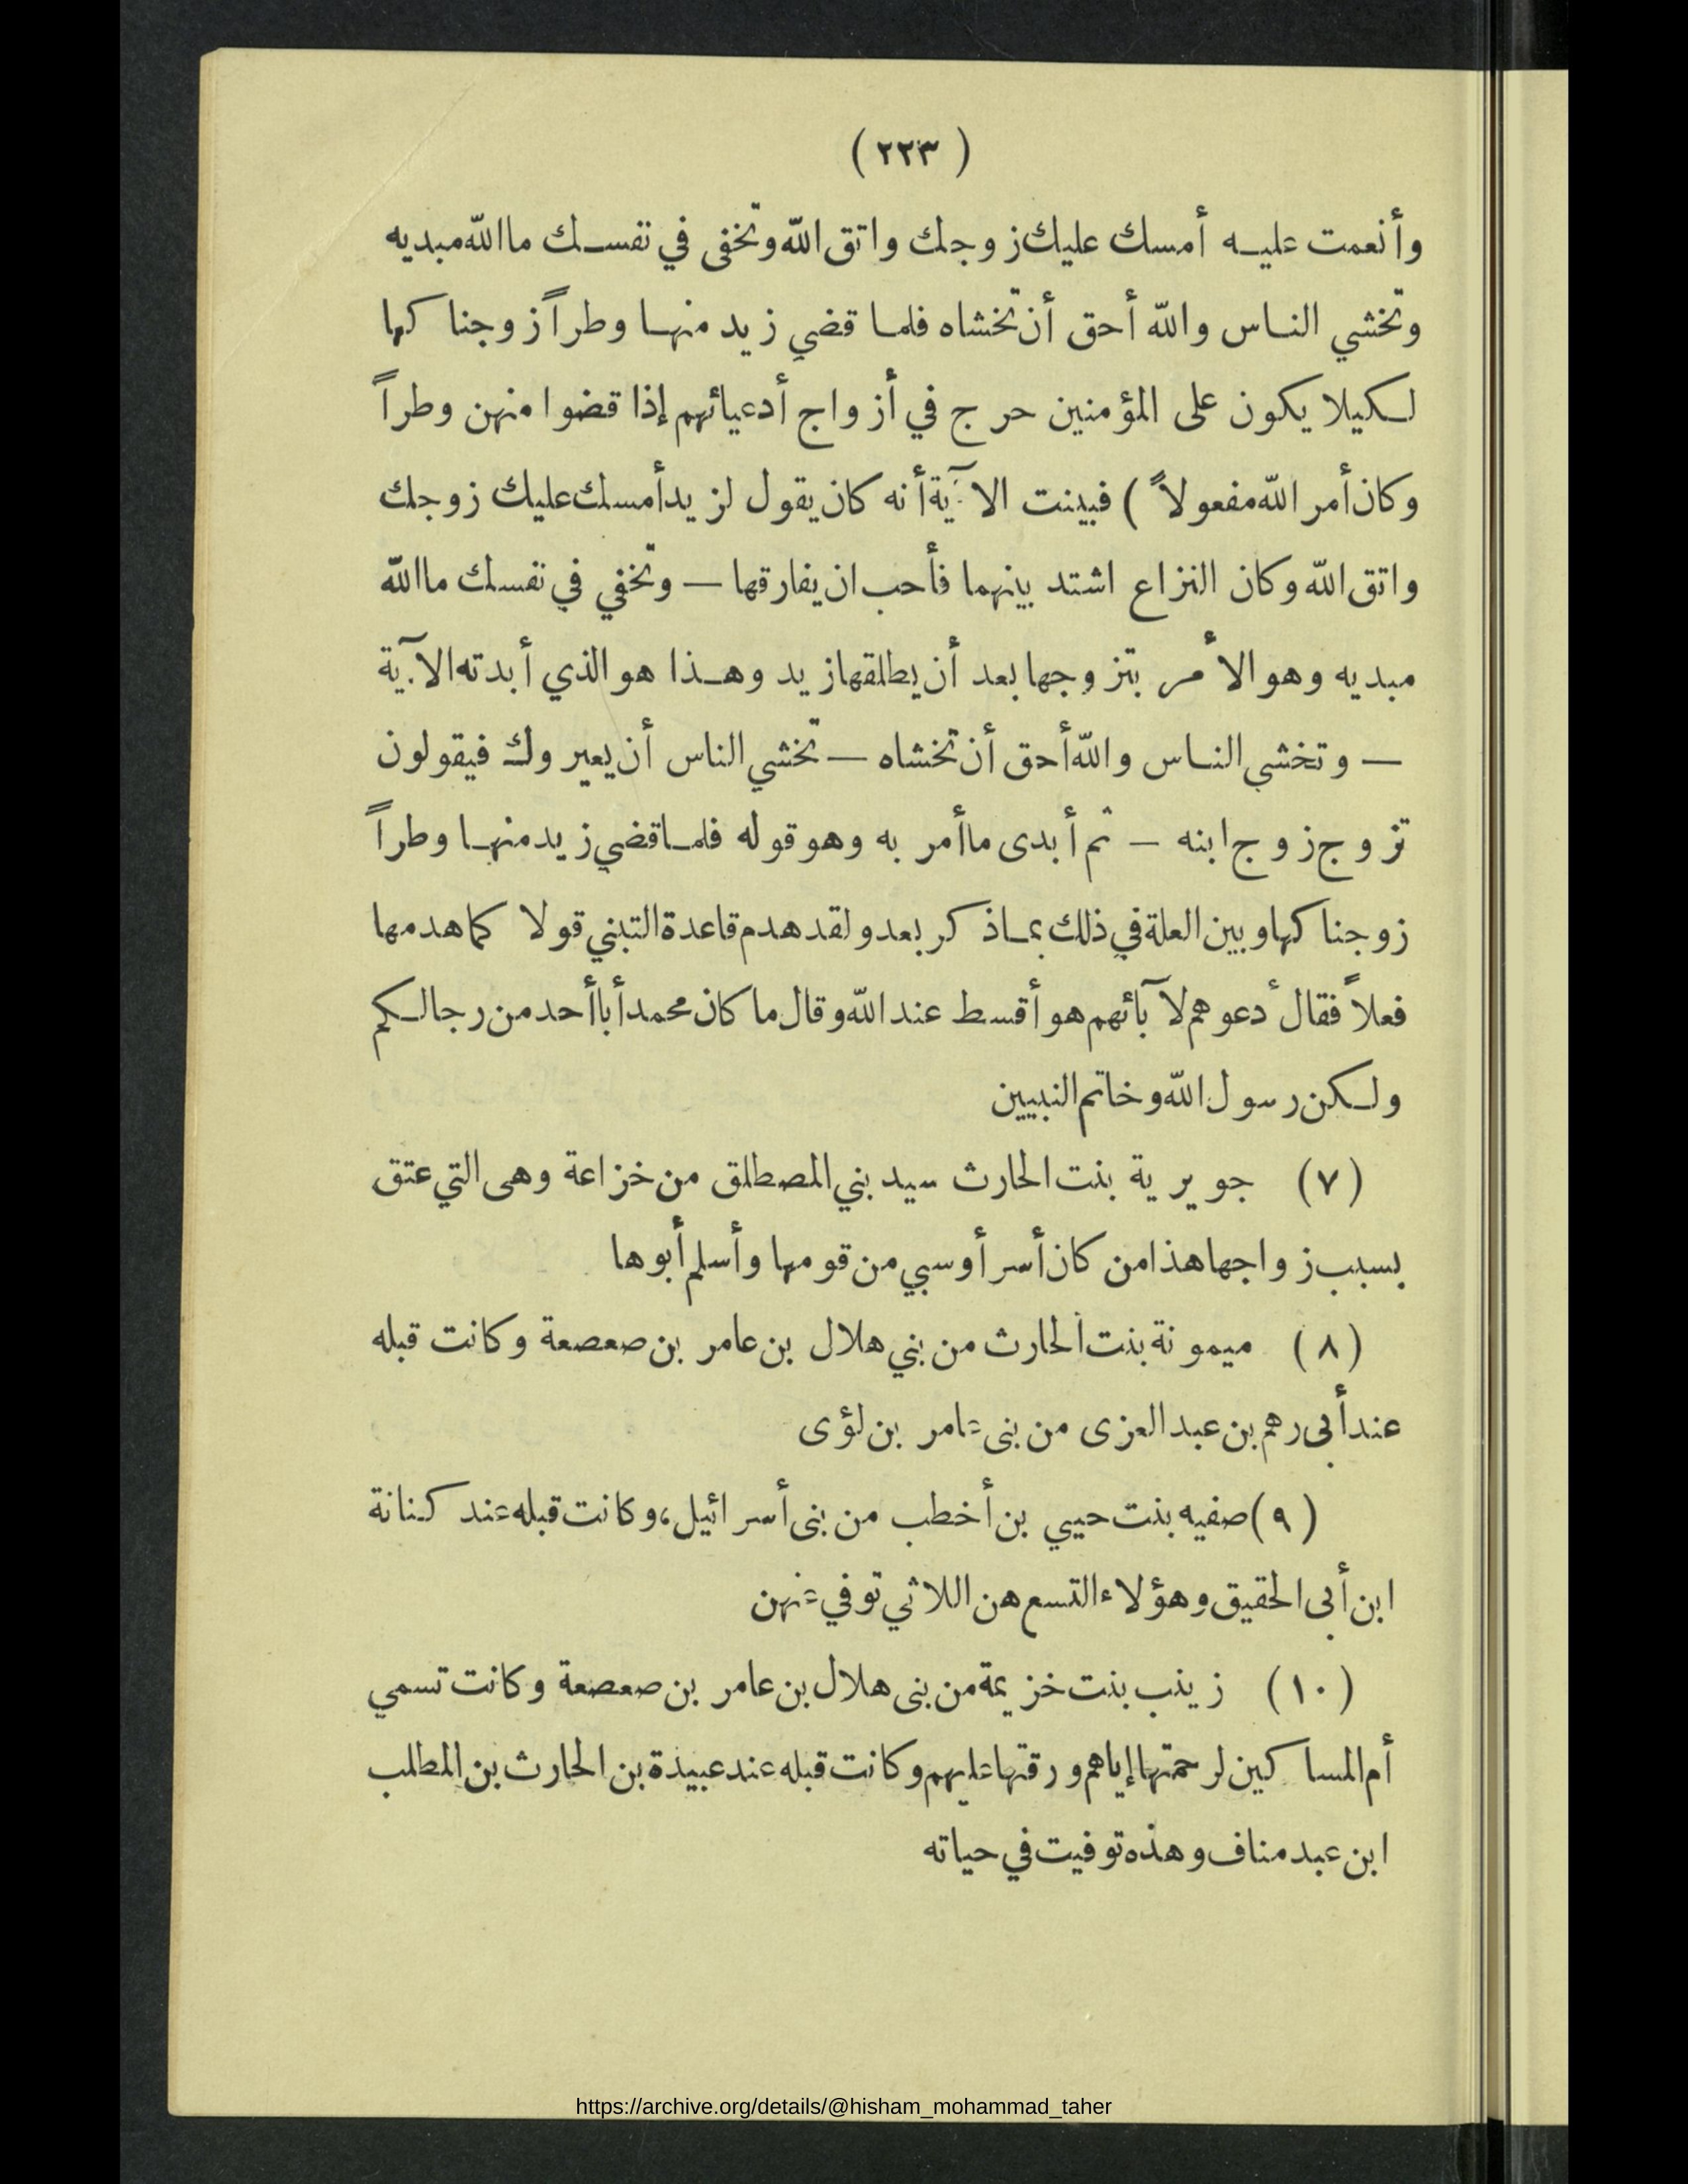 ( ٢٢٣ )
وأنعمت عليه أمسك عليك زوجك واتق الله وتخفى في نفسك ما الله مبديه
وتخشي الناس والله أحق أن تخشاه فلما قضي زيد منها وطراً زوجنا كها
لكيلا يكون على المؤمنين حرج في أزواج أدعيائهم إذا قضوا منهن وطراً
وكان أمر الله مفعولاً ) فبينت الآية أنه كان يقول لزيد أمسك عليك زوجك
واتق الله وكان النزاع اشتد بينهما فأحب ان يفارقها — وتخفي في نفسك ما الله
مبديه وهو الأمر بتزوجها بعد أن يطلقها زيد وهذا هو الذي أبدته الآية
— وتخشي الناس والله أحق أن تخشاه — تخشي الناس أن يعيروك فيقولون
تزوج زوج ابنه — ثم أبدى ما أمر به وهو قوله فلما قضي زيد منها وطراً
زوجنا كها وبين العلة في ذلك بما ذكر بعد ولقد هدم قاعدة التبني قولا كما هدمها
فعلاً فقال أدعوهم لآبائهم هو أقسط عند الله وقال ما كان محمد أبا أحد من رجالكم
ولكن رسول الله وخاتم النبيين
(٧) جويرية بنت الحارث سيد بني المصطلق من خزاعة وهى التي عتق
بسبب زواجها هذا من كان أسر أو سبي من قومها وأسلم أبوها
(٨) ميمونة بنت الحارث من بني هلال بن عامر بن صعصعة وكانت قبله
عند أبى رهم بن عبد العزى من بنى عامر بن لؤى
(٩) صفيه بنت حيي بن أخطب من بنى أسرائيل، وكانت قبله عند كنانة
ابن أبى الحقيق وهؤلاء التسع هن اللاثي توفي عنهن
(١٠) زينب بنت خزيمة من بنى هلال بن عامر بن صعصعة وكانت تسمي
أم المساكين لرحمتها إياهم ورقتها عليهم وكانت قبله عند عبيدة بن الحارث بن المطلب
ابن عبد مناف وهذه توفيت في حياته
https://archive.org/details/@hisham_mohammad_taher